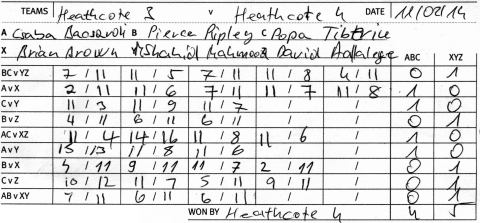 TEAMS Heathcote 3 v Heathcote 4 DATE 11/02/14
A Csaba Bacsardi B Pierce Ripley C Popa Tiberiu
X Brian Brown Y Shahid Mahmood Z David Adalegre ABC XYZ
BCvYZ 7 / 11 11 / 5 7 / 11 11 / 8 4 / 11 0 1
AvX 2 / 11 11 / 6 7 / 11 11 / 7 11 / 8 1 0
CvY 11 / 3 11 / 9 11 / 7 / / 1 0
BvZ 4 / 11 6 / 11 6 / 11 / / 0 1
ACvXZ 11 / 4 14 / 16 11 / 8 11 / 6 / 1 0
AvY 15 / 13 11 / 8 11 / 6 / / 1 0
BvX 4 / 11 9 / 11 11 / 7 2 / 11 / 0 1
CvZ 10 / 12 11 / 7 5 / 11 9 / 11 / 0 1
ABvXY 7 / 11 6 / 11 6 / 11 / / 0 1
WON BY Heathcote 4 4 5